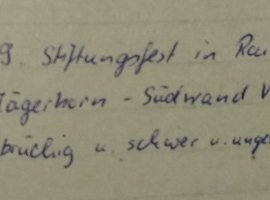 9 Stiftungsfest in Rau
Jägerhorn - Südwand V
brüchig u. schwer u. unge